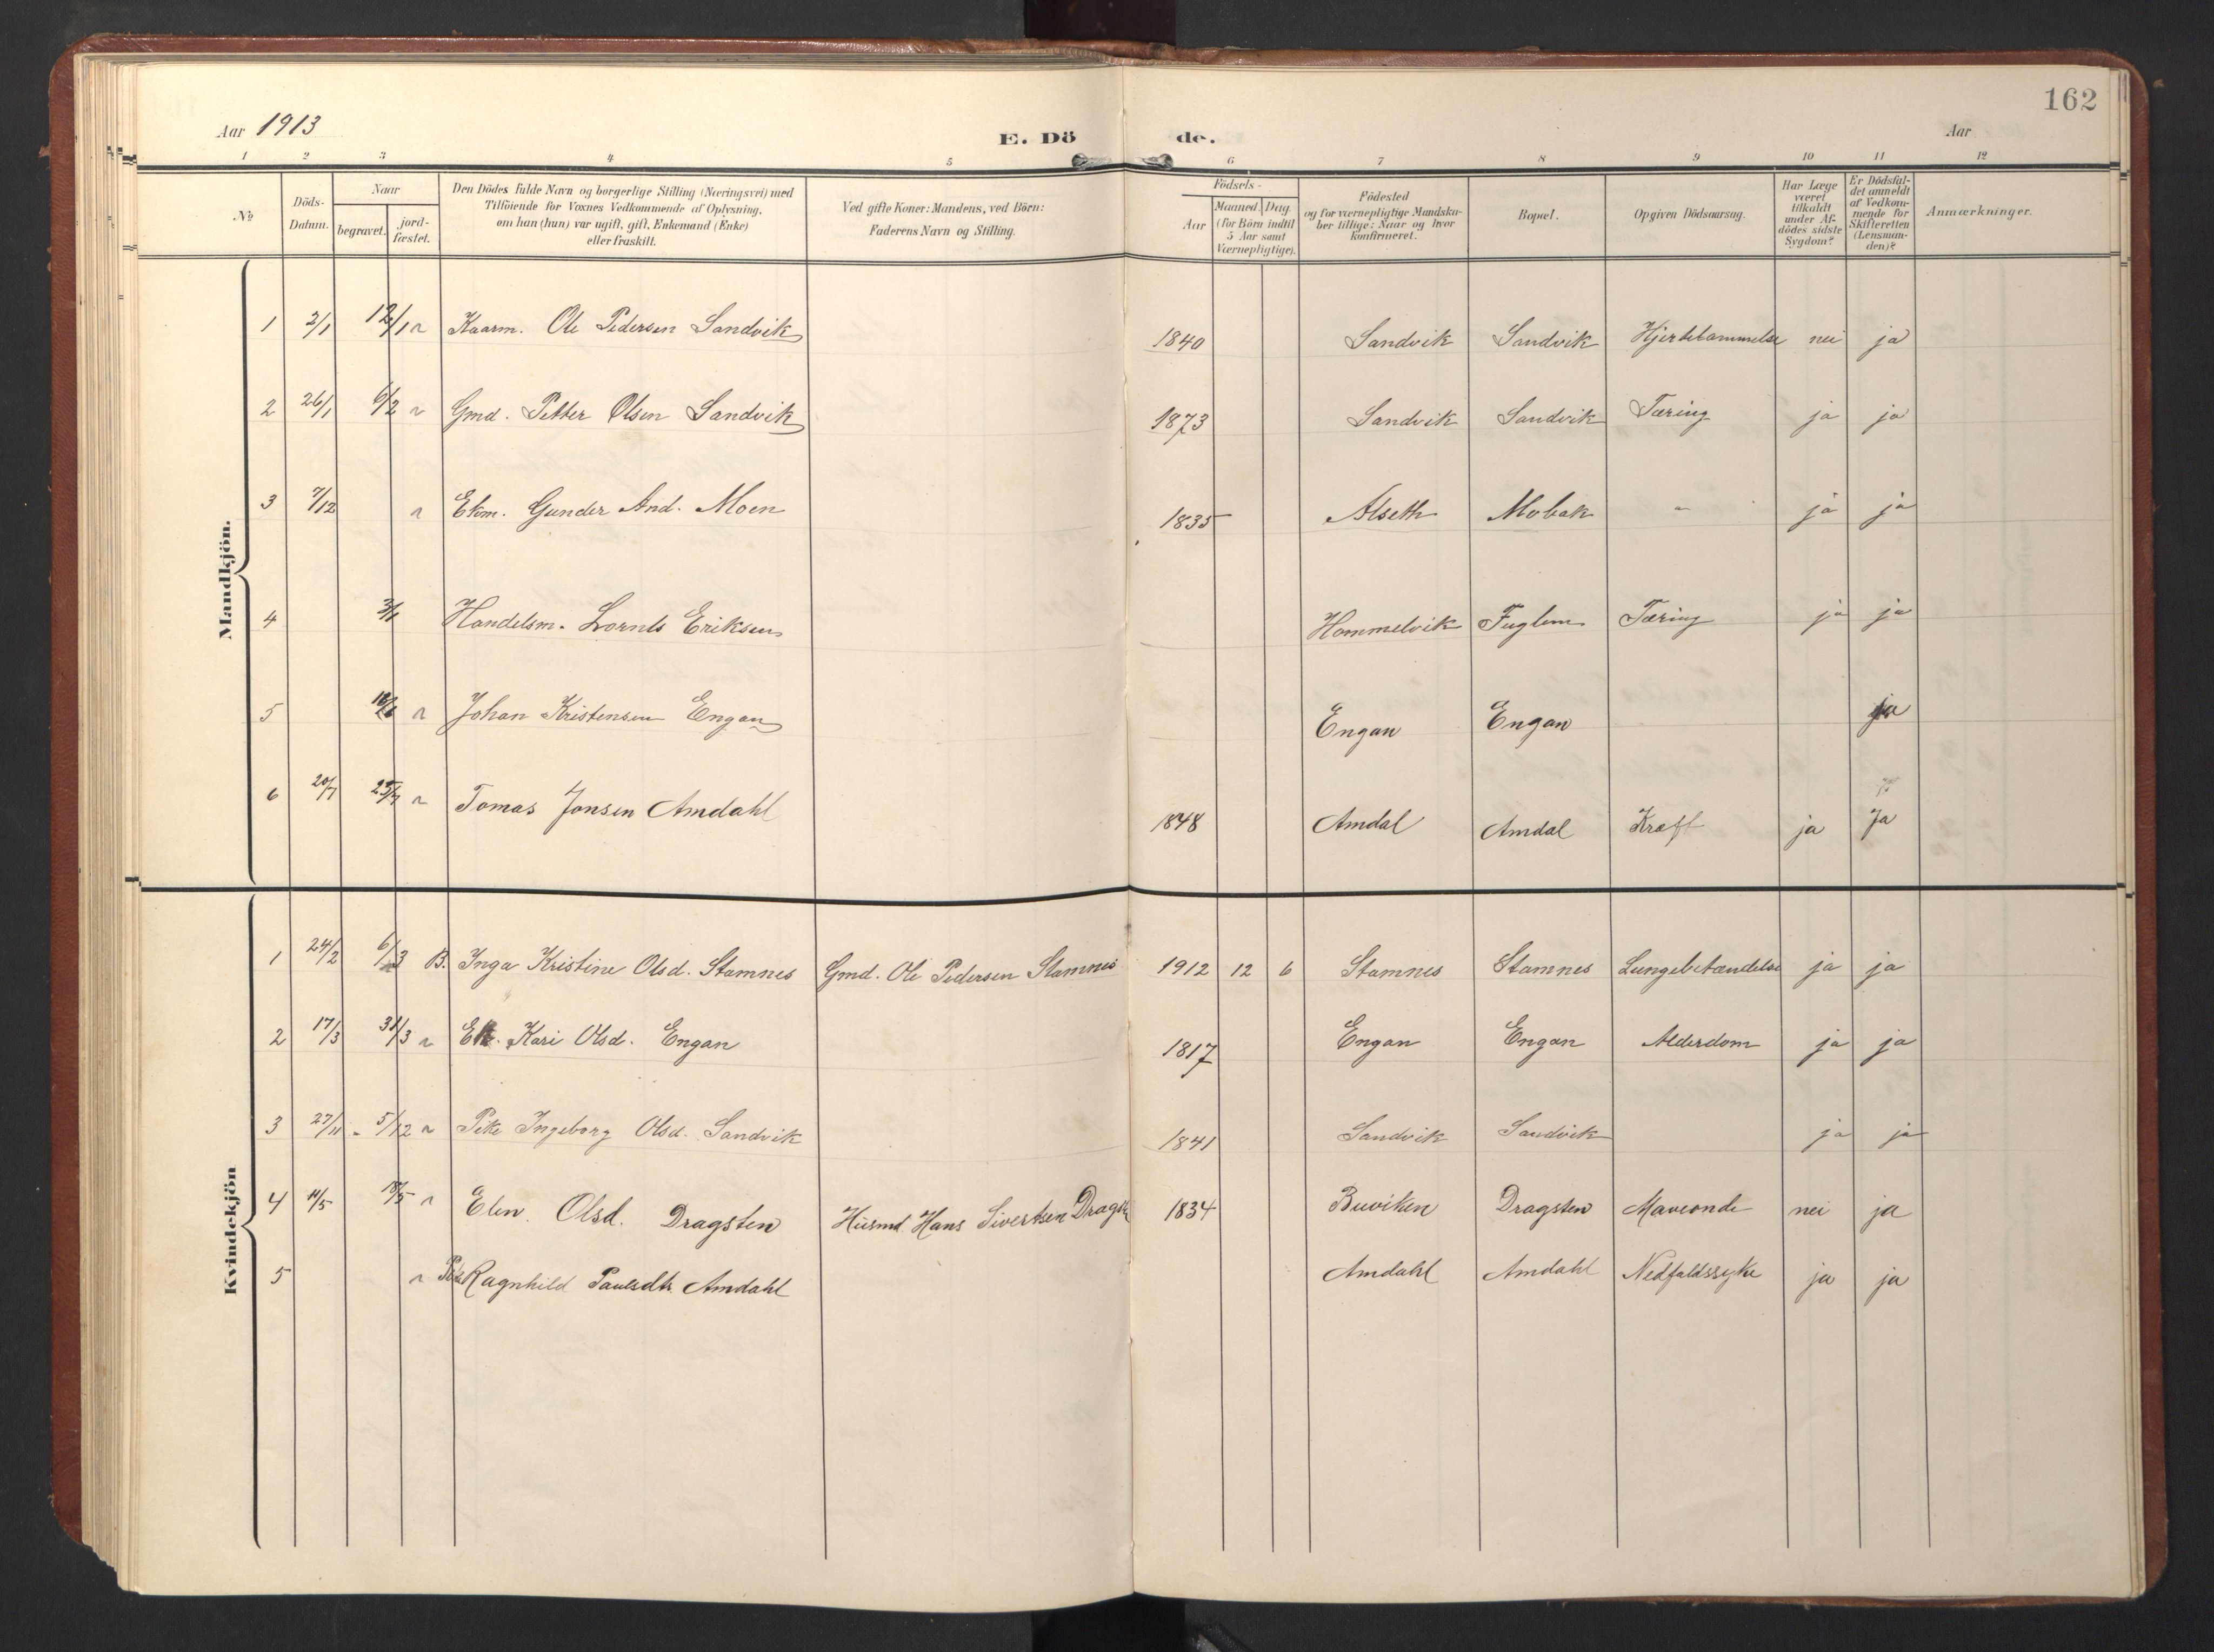 162
Aar 1913
E. Dö de.
Aar
1 2 3 4 5 6 7 8 9 10 11 12
№
Döds-Datum.
Naar
begravet.
jord-fæstet.
Den Dödes fulde Navn og borgerlige Stilling (Næringsvei) med
Tilföiende for Voxnes Vedkommende af Oplysning,
om han (hun) var ugift, gift, Enkemand (Enke)
eller fraskilt.
Ved gifte Koner: Mandens, ved Börn:
Faderens Navn og Stilling.
Födsels-
Aar
Maaned. Dag.
(for Börn indtil
5 Aar samt
Værnepligtige).
Födested
og for værnepligtige Mandska-
ber tillige: Naar og hvor
konfirmeret.
Bopæl.
Opgiven Dödsaarsag.
Har Læge
været
tilkaldt
under Af-
dödes sidste
Sygdom?
Er Dödsfal-
det anmeldt
af Vedkom-
mende for
Skifteretten
(Lensman-
den)?
Anmærkninger.
Mandkjön.
1 2/1 12/1 Kaarm. Ole Pedersen Sandvik 1840 Sandvik Sandvik Hjertelammelse nei ja
2 26/1 6/2 Gmd. Petter Olsen Sandvik 1873 Sandvik Sandvik Tæring ja ja
3 7/12 Ekm. Gunder And. Moen 1835 Alseth Mobak " ja ja
4 3/1 Handelsm. Lornts Eriksen Hommelvik Fuglem Tæring ja ja
5 Johan Kristensen Engan Engan Engan ja
6 20/7 25/7 Tomas Jonsen Amdahl 1848 Amdal Amdal Kræft ja Ja
Kvindekjön
1 24/2 6/3 B. Inga Kristine Olsd. Stamnes Gmd. Ole Pedersen Stamnes 1912 12 6 Stamnes Stamnes Lungebetændelse ja ja
2 17/3 31/3 Ek. Kari Olsd. Engan 1817 Engan Engan Alderdom ja ja
3 27/11 5/12 Pike Ingeborg Olsd. Sandvik 1841 Sandvik Sandvik ja ja
4 11/5 18/5 Elen Olsd. Dragsten Husmd. Hans Sivertsen Dragst 1834 Buviken Dragsten Maveonde nei ja
5 Pike Ragnhild Paulsdtr. Amdahl Amdahl Amdahl Nedfaldssyke ja ja